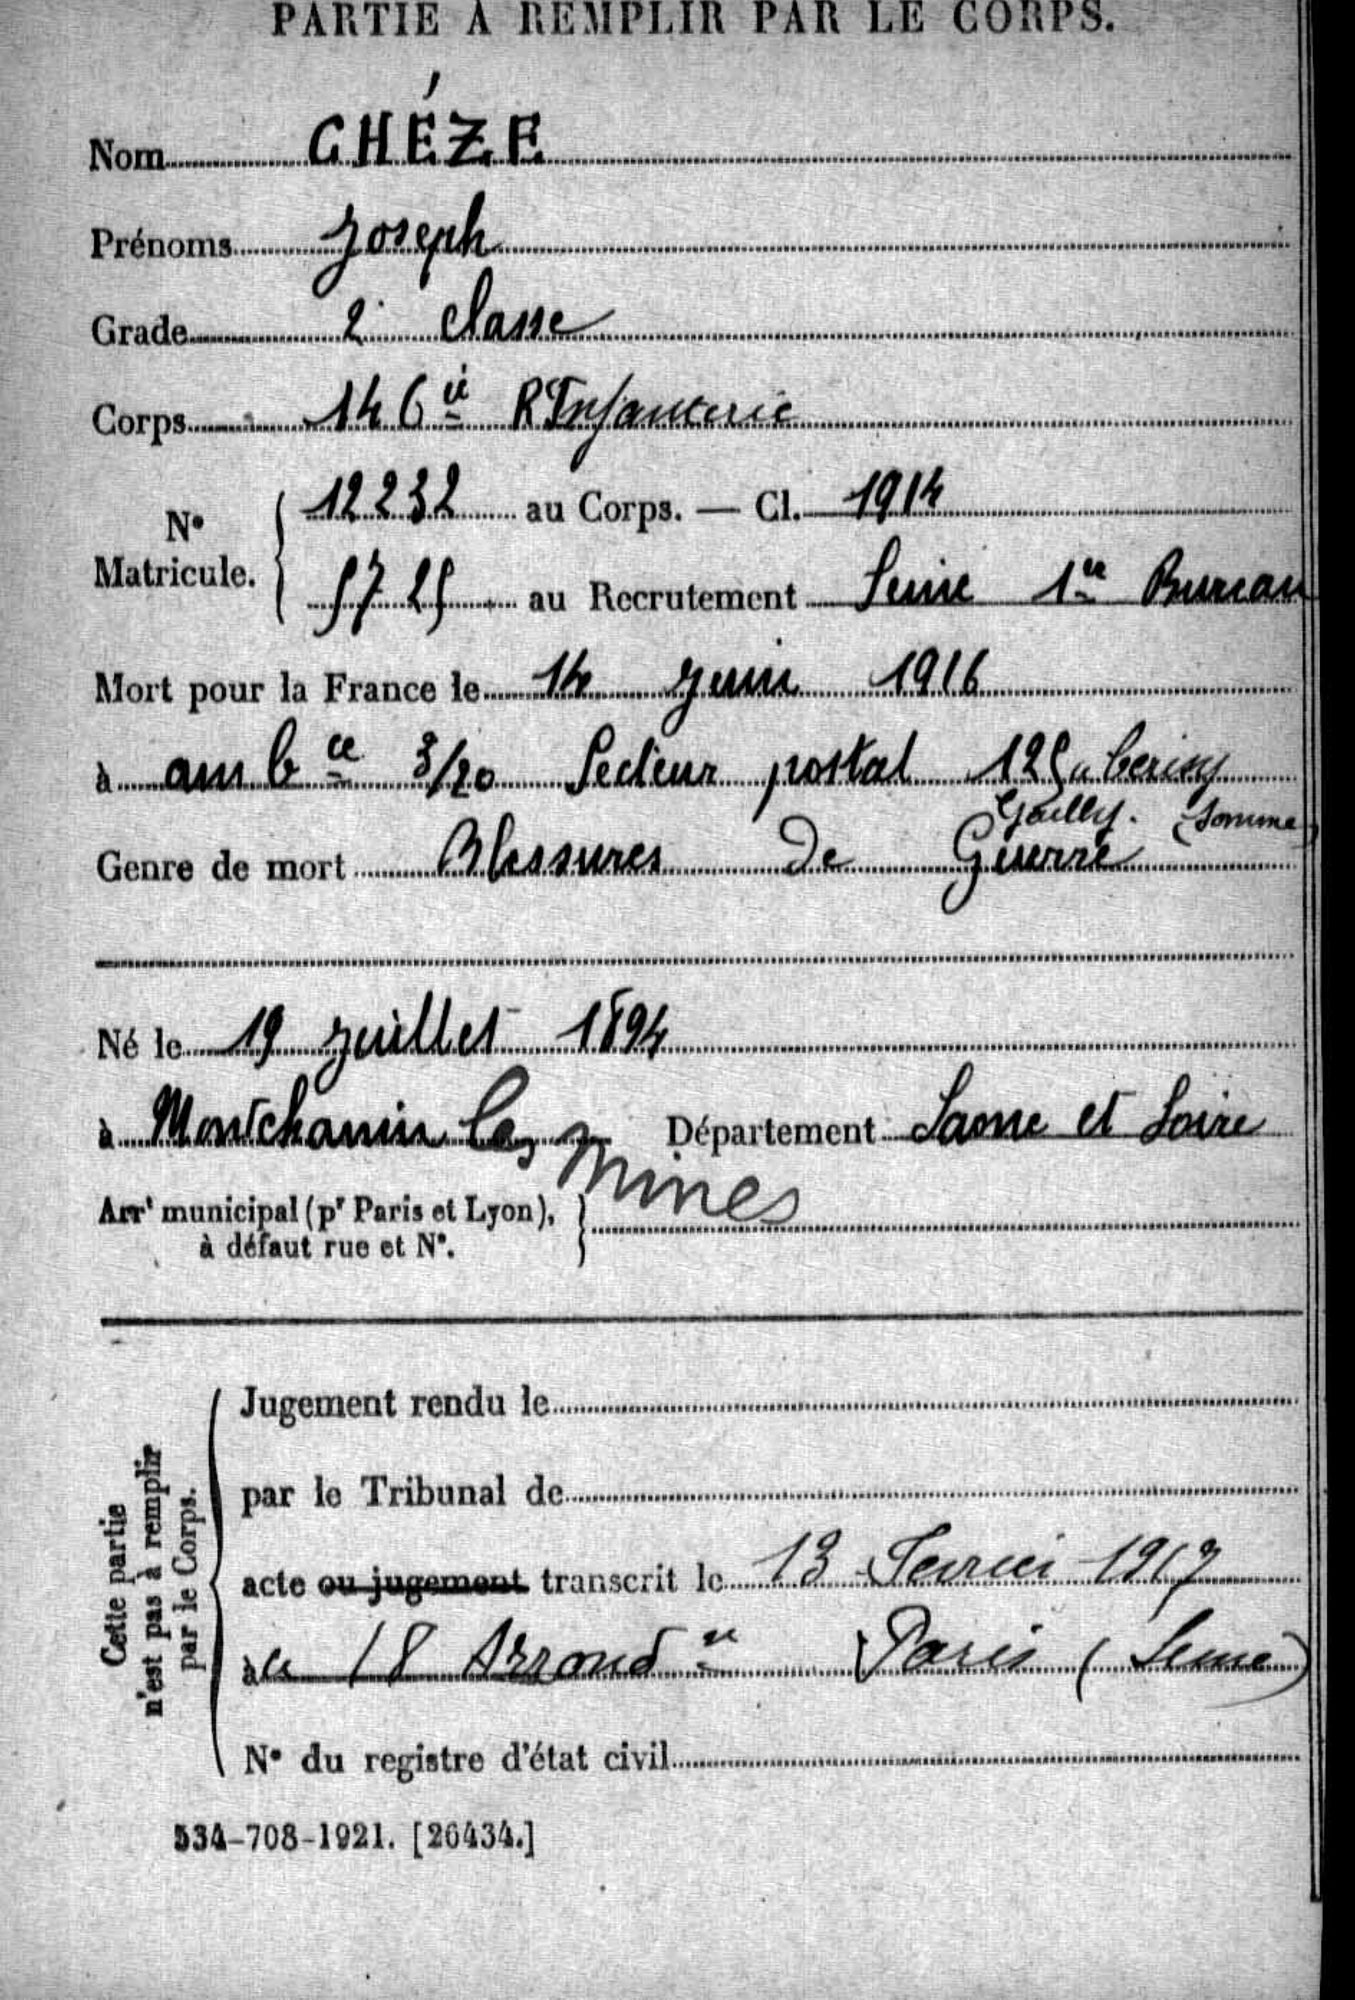 PARTIE À REMPLIR PAR LE CORPS.
Nom CHÉZE
Prénoms Joseph
Grade 2e classe
Corps 146e R Infanterie
No Matricule. 12232 au Corps. — Cl. 1914
5725 au Recrutement Seine 1er Bureau
Mort pour la France le 14 juin 1916
à ambce 3/20 Secteur postal 125 a Cerisy
Gailly. (Somme)
Genre de mort Blessures de Guerre
Né le 19 juillet 1894
à Montchanin les Mines Département Saone et Loire
Arrt municipal (pr Paris et Lyon),
à défaut rue et No.
Cette partie
n'est pas à remplir
par le Corps.
Jugement rendu le
par le Tribunal de
acte ou jugement transcrit le 13 Fevrier 1917
à 18 Arrondt Paris (Seine)
No du registre d'état civil
534-708-1921. [26434.]